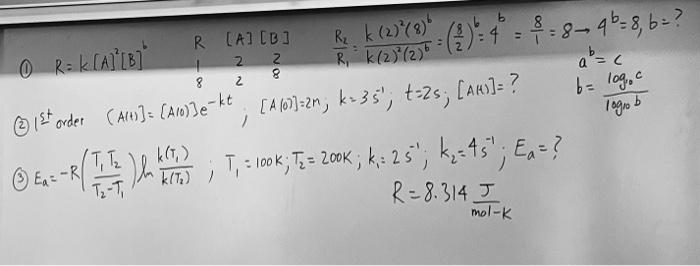 ① R=k[A]²[B]ᵇ
R [A] [B]
1 2 2
8 2 8
R₂/R₁ = k(2)²(8)ᵇ / k(2)²(2)ᵇ = (8/2)ᵇ = 4ᵇ = 8/1 = 8 → 4ᵇ=8, b=?
aᵇ=c
b= log₁₀c / log₁₀b
② 1st order [A(t)]=[A(0)]e^-kt ; [A(0)]=2M; k=3s⁻¹; t=2s; [A(t)]=?
③ Ea=-R(T₁T₂ / T₂-T₁) ln k(T₁)/k(T₂) ; T₁=100K; T₂=200K; k₁=2s⁻¹; k₂=4s⁻¹; Ea=?
R=8.314 J/mol-K